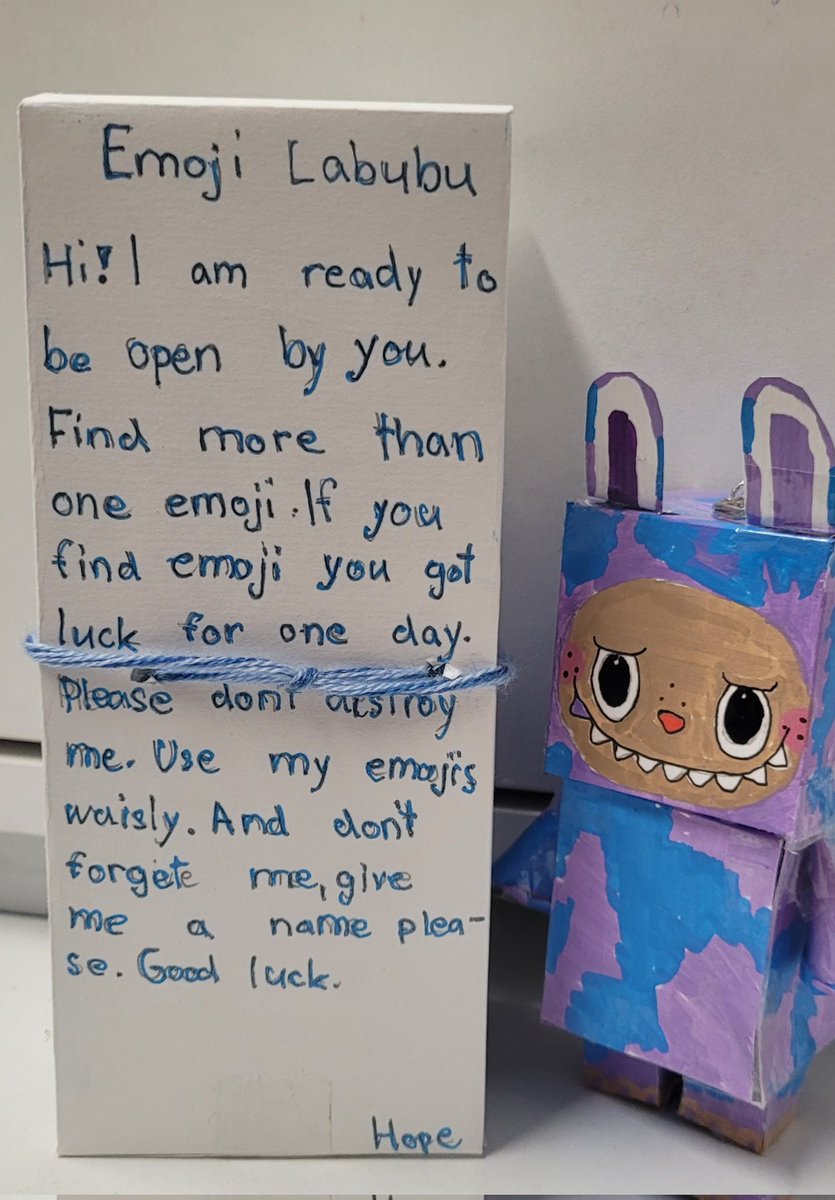 Emoji Labubu
Hi! I am ready to
be open by you.
Find more than
one emoji. If you
find emoji you got
luck for one day.
Please dont destroy
me. Use my emojis
waisly. And don't
forgete me, give
me a name plea-
se. Good luck.
Hope